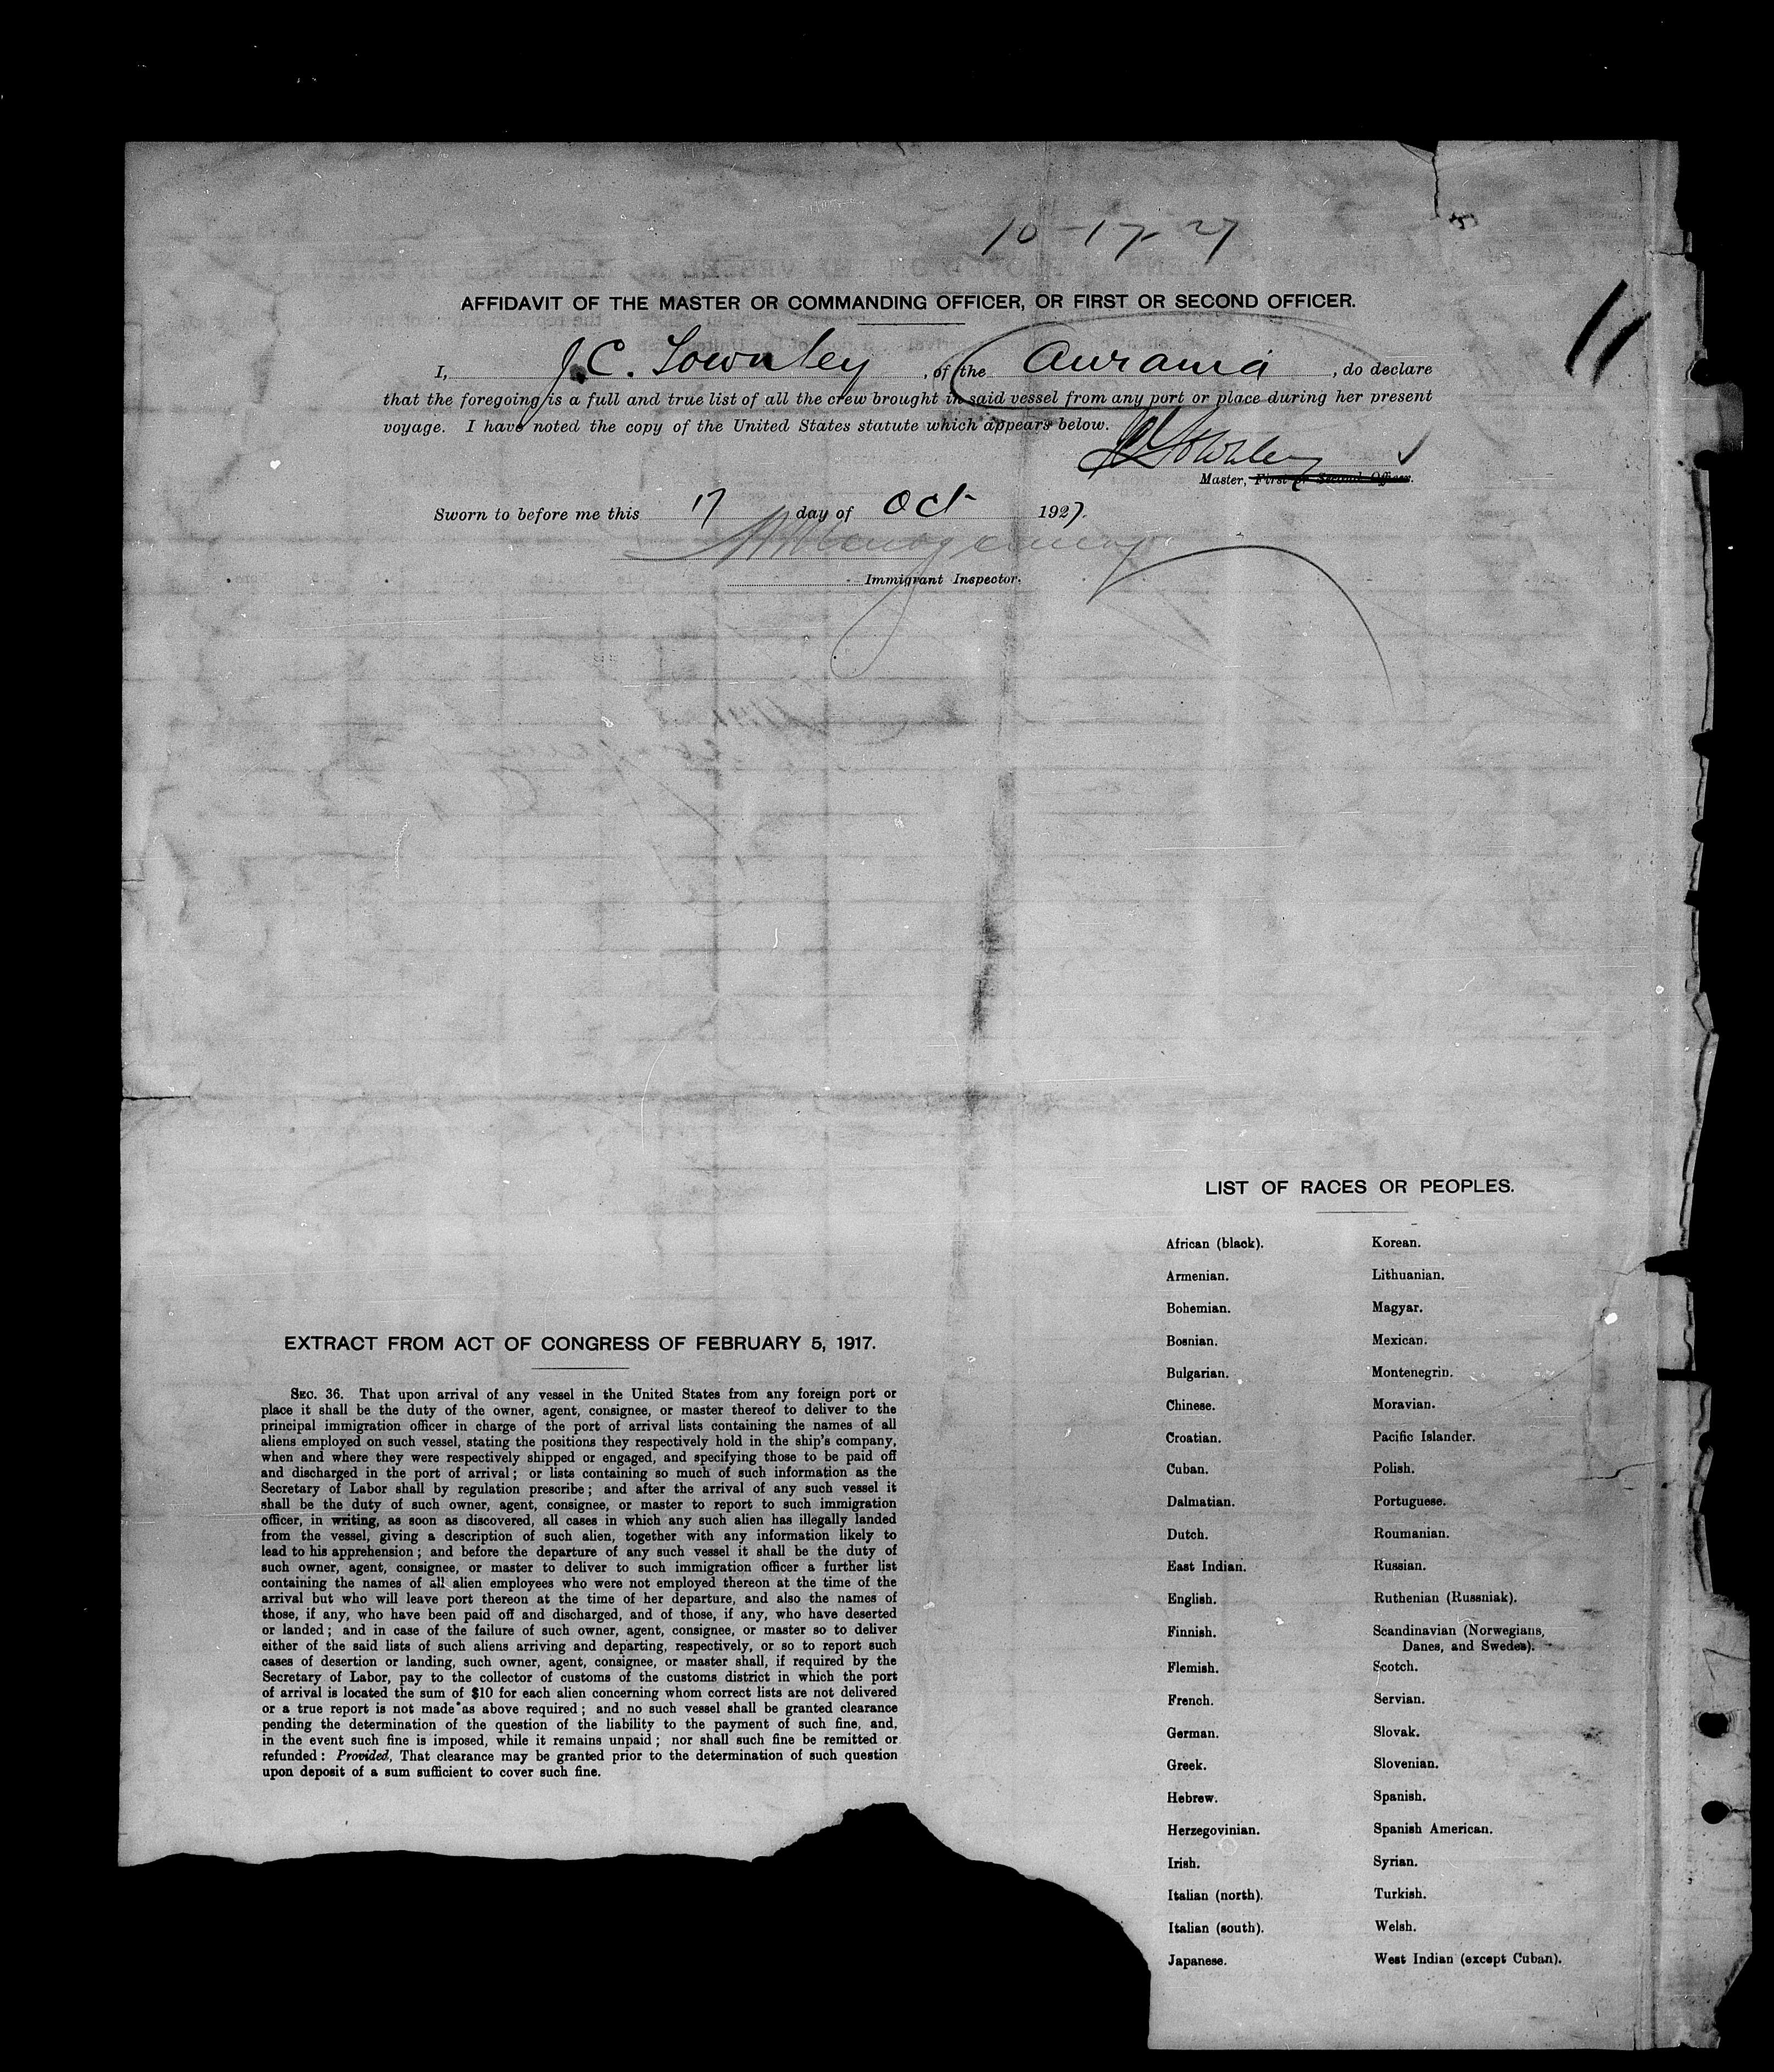 10-17-27
AFFIDAVIT OF THE MASTER OR COMMANDING OFFICER, OR FIRST OR SECOND OFFICER.
11
I, J.C. Townley, of the Aurania, do declare
that the foregoing is a full and true list of all the crew brought in said vessel from any port or place during her present
voyage. I have noted the copy of the United States statute which appears below.
JCTownley
Master, First or Second Officer.
Sworn to before me this 17 day of Oct 1927.
Immigrant Inspector.
EXTRACT FROM ACT OF CONGRESS OF FEBRUARY 5, 1917.
SEC. 36. That upon arrival of any vessel in the United States from any foreign port or
place it shall be the duty of the owner, agent, consignee, or master thereof to deliver to the
principal immigration officer in charge of the port of arrival lists containing the names of all
aliens employed on such vessel, stating the positions they respectively hold in the ship's company,
when and where they were respectively shipped or engaged, and specifying those to be paid off
and discharged in the port of arrival; or lists containing so much of such information as the
Secretary of Labor shall by regulation prescribe; and after the arrival of any such vessel it
shall be the duty of such owner, agent, consignee, or master to report to such immigration
officer, in writing, as soon as discovered, all cases in which any such alien has illegally landed
from the vessel, giving a description of such alien, together with any information likely to
lead to his apprehension; and before the departure of any such vessel it shall be the duty of
such owner, agent, consignee, or master to deliver to such immigration officer a further list
containing the names of all alien employees who were not employed thereon at the time of the
arrival but who will leave port thereon at the time of her departure, and also the names of
those, if any, who have been paid off and discharged, and of those, if any, who have deserted
or landed; and in case of the failure of such owner, agent, consignee, or master so to deliver
either of the said lists of such aliens arriving and departing, respectively, or so to report such
cases of desertion or landing, such owner, agent, consignee, or master shall, if required by the
Secretary of Labor, pay to the collector of customs of the customs district in which the port
of arrival is located the sum of $10 for each alien concerning whom correct lists are not delivered
or a true report is not made as above required; and no such vessel shall be granted clearance
pending the determination of the question of the liability to the payment of such fine, and,
in the event such fine is imposed, while it remains unpaid; nor shall such fine be remitted or
refunded: Provided, That clearance may be granted prior to the determination of such question
upon deposit of a sum sufficient to cover such fine.
LIST OF RACES OR PEOPLES.
African (black).
Armenian.
Bohemian.
Bosnian.
Bulgarian.
Chinese.
Croatian.
Cuban.
Dalmatian.
Dutch.
East Indian.
English.
Finnish.
Flemish.
French.
German.
Greek.
Hebrew.
Herzegovinian.
Irish.
Italian (north).
Italian (south).
Japanese.
Korean.
Lithuanian.
Magyar.
Mexican.
Montenegrin.
Moravian.
Pacific Islander.
Polish.
Portuguese.
Roumanian.
Russian.
Ruthenian (Russniak).
Scandinavian (Norwegians,
Danes, and Swedes).
Scotch.
Servian.
Slovak.
Slovenian.
Spanish.
Spanish American.
Syrian.
Turkish.
Welsh.
West Indian (except Cuban).